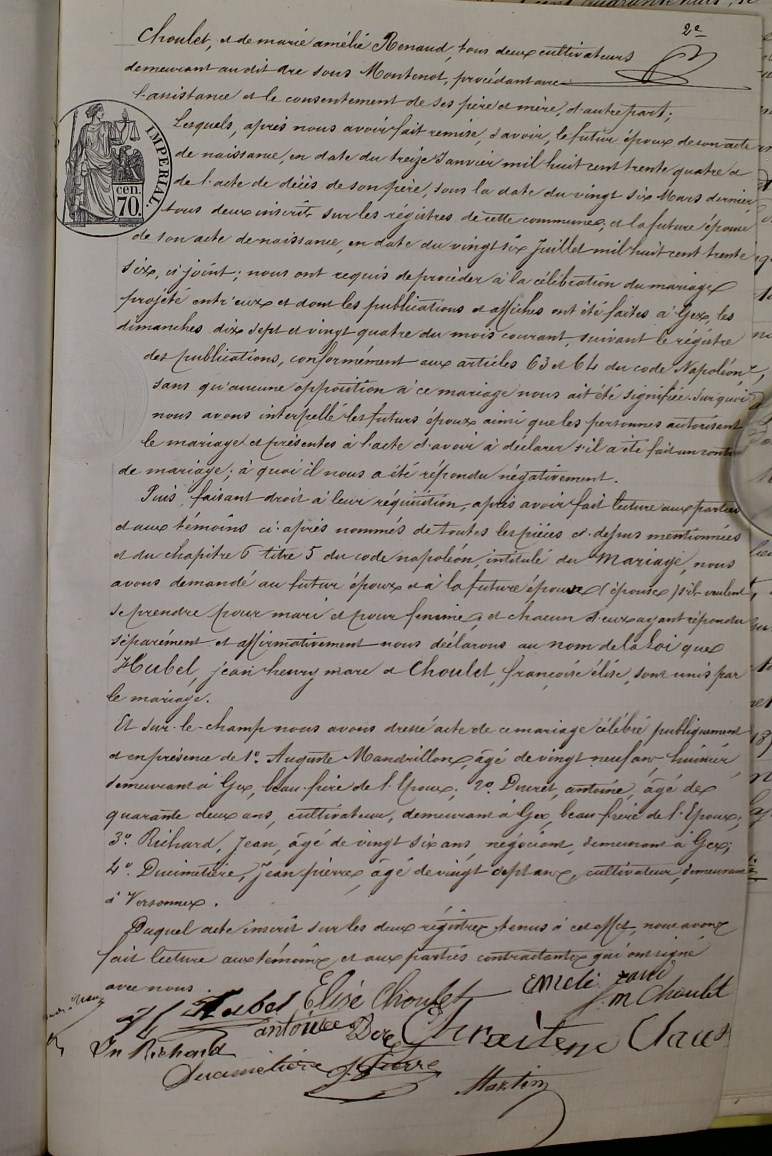 2e
Choulet, et de marie amélie Renaud, tous deux cultivateurs
demeurant au dit dre sous Montenot, procédant avec
l'assistance et le consentement de ses père et mère, d'autre part;
Lesquels, après nous avoir fait remise, savoir, le futur époux de son acte
de naissance, en date du treize Janvier mil huit cent trente quatre et
de l'acte de décès de son père, sous la date du vingt six Mars dernier,
tous deux inscrits sur les régistres de cette commune, et la future épouse
de son acte de naissance, en date du vingt six Juillet mil huit cent trente
six, ci joint; nous ont requis de procéder à la célébration du mariage
projeté entr'eux et dont les publications et affiches ont été faites à Gex, les
dimanches dix sept et vingt quatre du mois courant, suivant le régistre
des publications, conformément aux articles 63 et 64 du code Napoléon,
sans qu'aucune opposition à ce mariage nous ait été signifiée. Sur quoi
nous avons interpellé les futurs époux ainsi que les personnes autorisant
le mariage et présentes à l'acte d'avoir à déclarer s'il a été fait un contrat
de mariage; à quoi il nous a été répondu négativement.
Puis, faisant droit à leur réquisition, après avoir fait lecture aux parties
et aux témoins ci-après nommés de toutes les pièces ci-dessus mentionnées
et du chapitre 6 titre 5 du code napoléon, intitulé du Mariage, nous
avons demandé au futur époux et à la future épouse (épouse) s'ils veulent
se prendre pour mari et pour femme, et chacun d'eux ayant répondu
séparément et affirmativement nous déclarons au nom de la loi que
Hubel, jean henry marc et Choulet, françoise élise, sont unis par
le mariage.
Et sur-le-champ nous avons dressé acte de ce mariage célébré publiquement
et en présence de 1o. Auguste Mandrillon, âgé de vingt neuf ans, huissier
demeurant à Gex, beau-frère de l'Epoux; 2o. Ducret, antoine, âgé de
quarante deux ans, cultivateur, demeurant à Gex, beau-frère de l'Epoux;
3o. Richard, Jean, âgé de vingt six ans négociant, demeurant à Gex;
4o. Ducimetière, Jean pierre, âgé de vingt sept ans, cultivateur, demeurant
à Versonnex.
Duquel acte inscrit sur les deux régistres tenus à cet effet, nous avons
fait lecture aux témoins et aux parties contractantes qui ont signé
avec nous.
IMPERIAL.
cen.
70.
H Hubel Elise Choulet
m Choulet
antoine
Jn Richard
Ducimetière J. Pierre
Martin